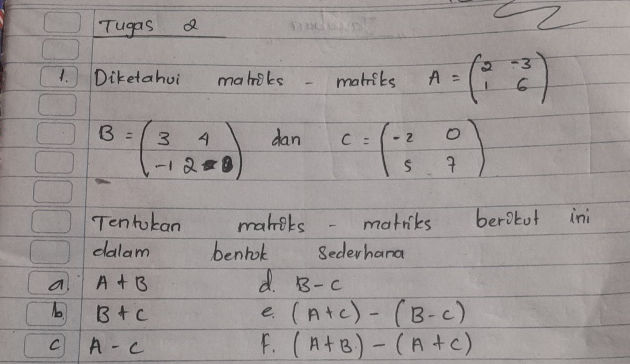 Tugas 2
1. Diketahui matriks - matriks A = (2 -3
1 6)
B = (3 4
-1 2) dan C = (-2 0
5 7)
Tentukan matriks - matriks berikut ini
dalam bentuk sederhana
a. A + B d. B - C
b B + C e. (A + C) - (B - C)
c A - C F. (A + B) - (A + C)